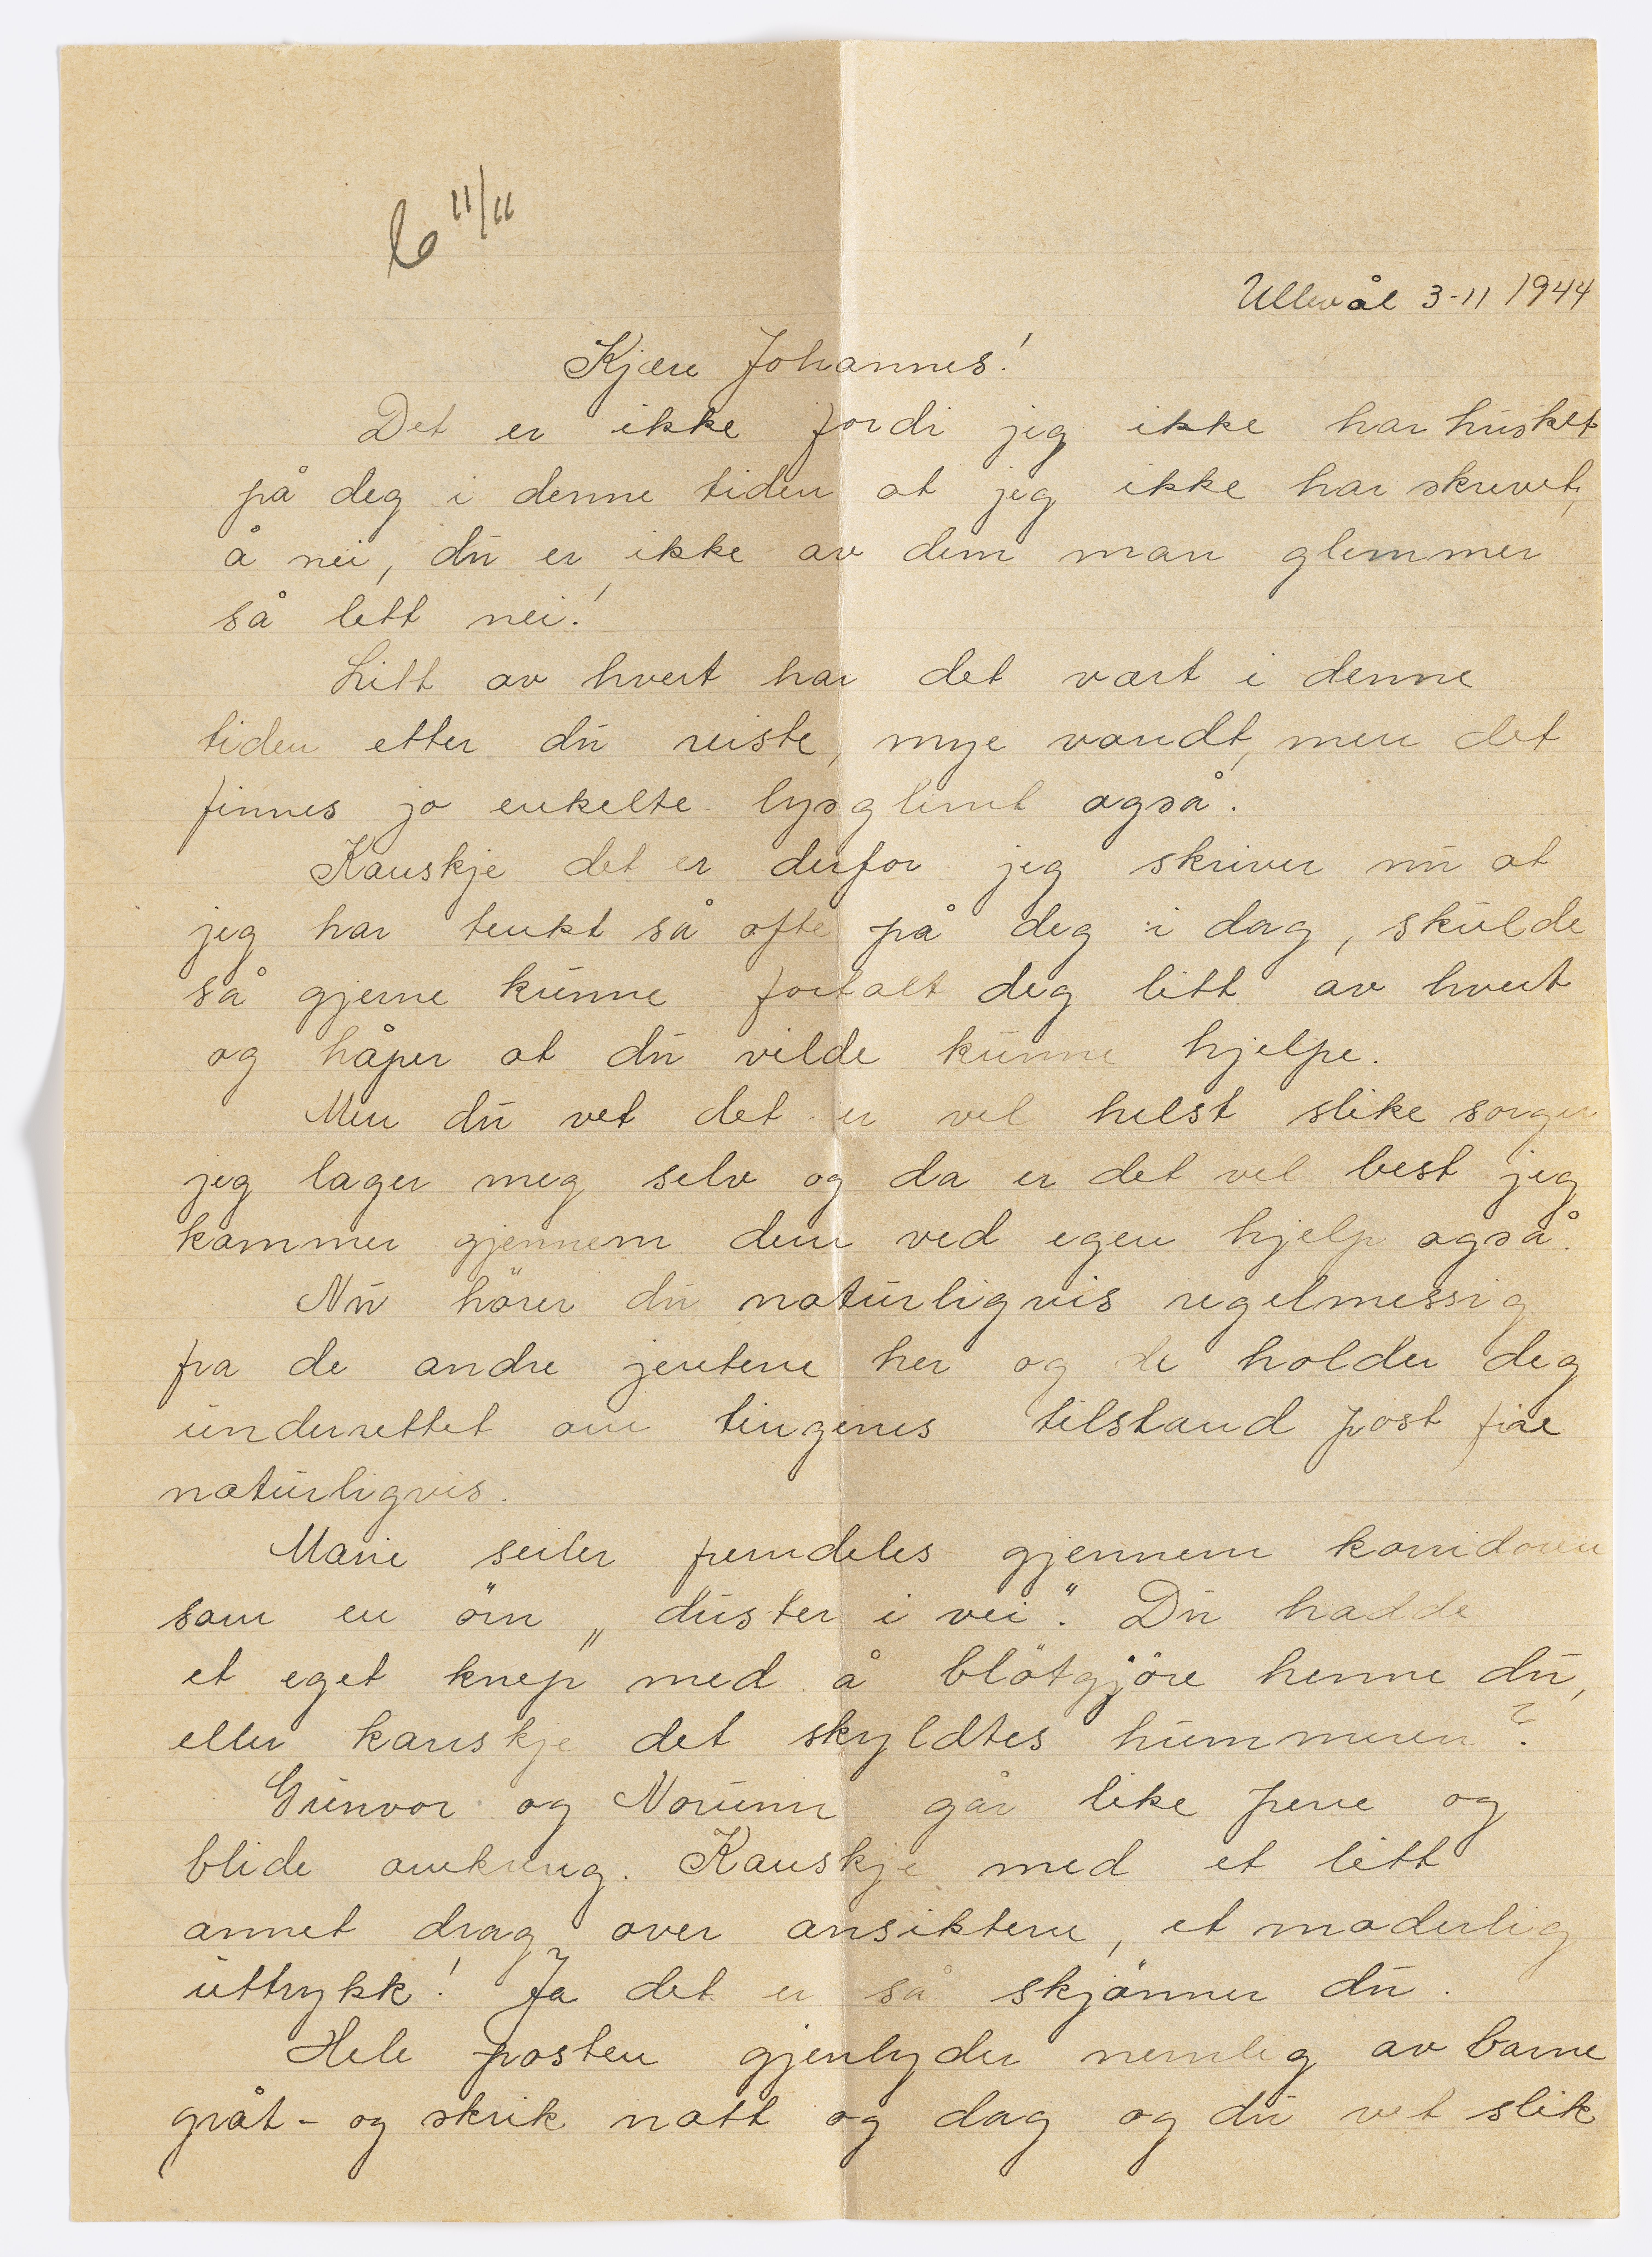 11/11
Ullevål 3-11 1944
Kjære Johannes!
Det er ikke fordi jeg ikke har husket
på deg i denne tiden at jeg ikke har skrevet,
å nei, du er ikke av dem man glemmer
så lett nei!
Litt av hvert har det vært i denne
tiden etter du reiste, mye vondt, men det
finnes jo enkelte lysglimt også.
Kanskje det er derfor jeg skriver nu at
jeg har tenkt så ofte på deg i dag, skulde
så gjerne kunne fortalt deg litt av hvert
og håper at du vilde kunne hjelpe.
Men du vet det er vel helst slike sorger
jeg lager meg selv og da er det vel best jeg
kommer gjennem dem ved egen hjelp også.
Nu hører du naturligvis regelmessig
fra de andre jentene her og de holder deg
underrettet om tingenes tilstand post fire
naturligvis.
Marie seiler fremdeles gjennem korridoren
som en ørn „duster i vei". Du hadde
et eget knep med å bløtgjøre henne du,
eller kanskje det skyldtes hummeren?
Gunvor og Norunn går like pene og
blide omkring. Kanskje med et litt
annet drag over ansiktene, et moderlig
uttrykk! Ja det er så skjønner du.
Hele posten gjenlyder nemlig av barne
gråt- og skrik natt og dag og du vet slik